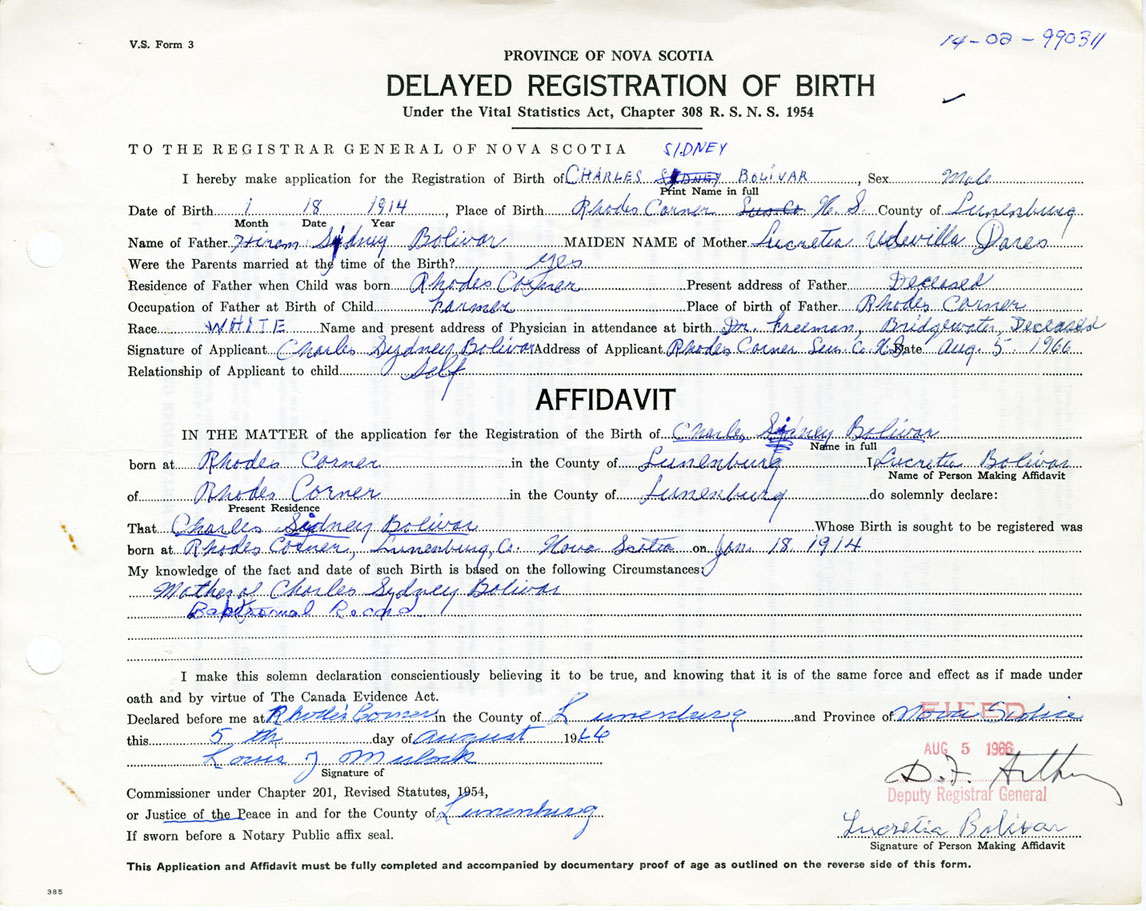 V.S. Form 3
14-02-990311
PROVINCE OF NOVA SCOTIA
DELAYED REGISTRATION OF BIRTH
Under the Vital Statistics Act, Chapter 308 R. S. N. S. 1954
TO THE REGISTRAR GENERAL OF NOVA SCOTIA SIDNEY
I hereby make application for the Registration of Birth of CHARLES SYDNEY BOLIVAR, Sex Male
Print Name in full
Date of Birth 1 18 1914, Place of Birth Rhodes Corner Lun. Co. N. S. County of Lunenburg
Month Date Year
Name of Father Hiram Sidney Bolivar MAIDEN NAME of Mother Lucretia Udevilla Dares
Were the Parents married at the time of the Birth? yes
Residence of Father when Child was born Rhodes Corner Present address of Father Deceased
Occupation of Father at Birth of Child Farmer Place of birth of Father Rhodes Corner
Race WHITE Name and present address of Physician in attendance at birth Dr. Freeman, Bridgewater, Deceased
Signature of Applicant Charles Sydney Bolivar Address of Applicant Rhodes Corner Lun. Co. N.S. Date Aug. 5. 1966
Relationship of Applicant to child Self
AFFIDAVIT
IN THE MATTER of the application for the Registration of the Birth of Charles Sidney Bolivar
Name in full
born at Rhodes Corner in the County of Lunenburg I, Lucretia Bolivar
Name of Person Making Affidavit
of Rhodes Corner in the County of Lunenburg do solemnly declare:
Present Residence
That Charles Sidney Bolivar Whose Birth is sought to be registered was
born at Rhodes Corner, Lunenburg, Co. Nova Scotia on Jan. 18. 1914
My knowledge of the fact and date of such Birth is based on the following Circumstances:
Mother of Charles Sydney Bolivar
Baptismal Record.
I make this solemn declaration conscientiously believing it to be true, and knowing that it is of the same force and effect as if made under
oath and by virtue of The Canada Evidence Act.
Declared before me at Rhodes Corner in the County of Lunenburg and Province of Nova Scotia
FILED
this 5 th day of August 1966
AUG 5 1966
Louis J Mulock
D.F. Arthur
Signature of
Deputy Registrar General
Commissioner under Chapter 201, Revised Statutes, 1954,
or Justice of the Peace in and for the County of Lunenburg
Lucretia Bolivar
If sworn before a Notary Public affix seal.
Signature of Person Making Affidavit
This Application and Affidavit must be fully completed and accompanied by documentary proof of age as outlined on the reverse side of this form.
385